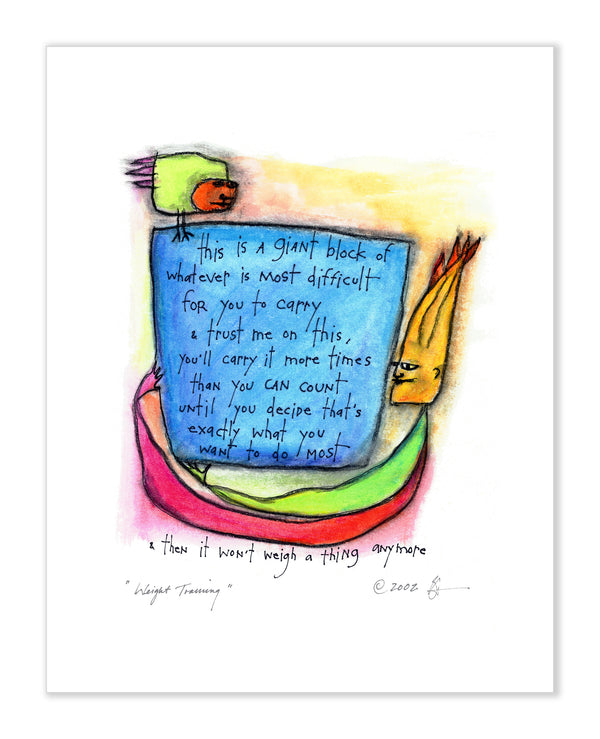 this is a giant block of
whatever is most difficult
for you to carry
& trust me on this,
you'll carry it more times
than you can count
until you decide that's
exactly what you
want to do most
& then it won't weigh a thing anymore
"Weight Training"
© 2002